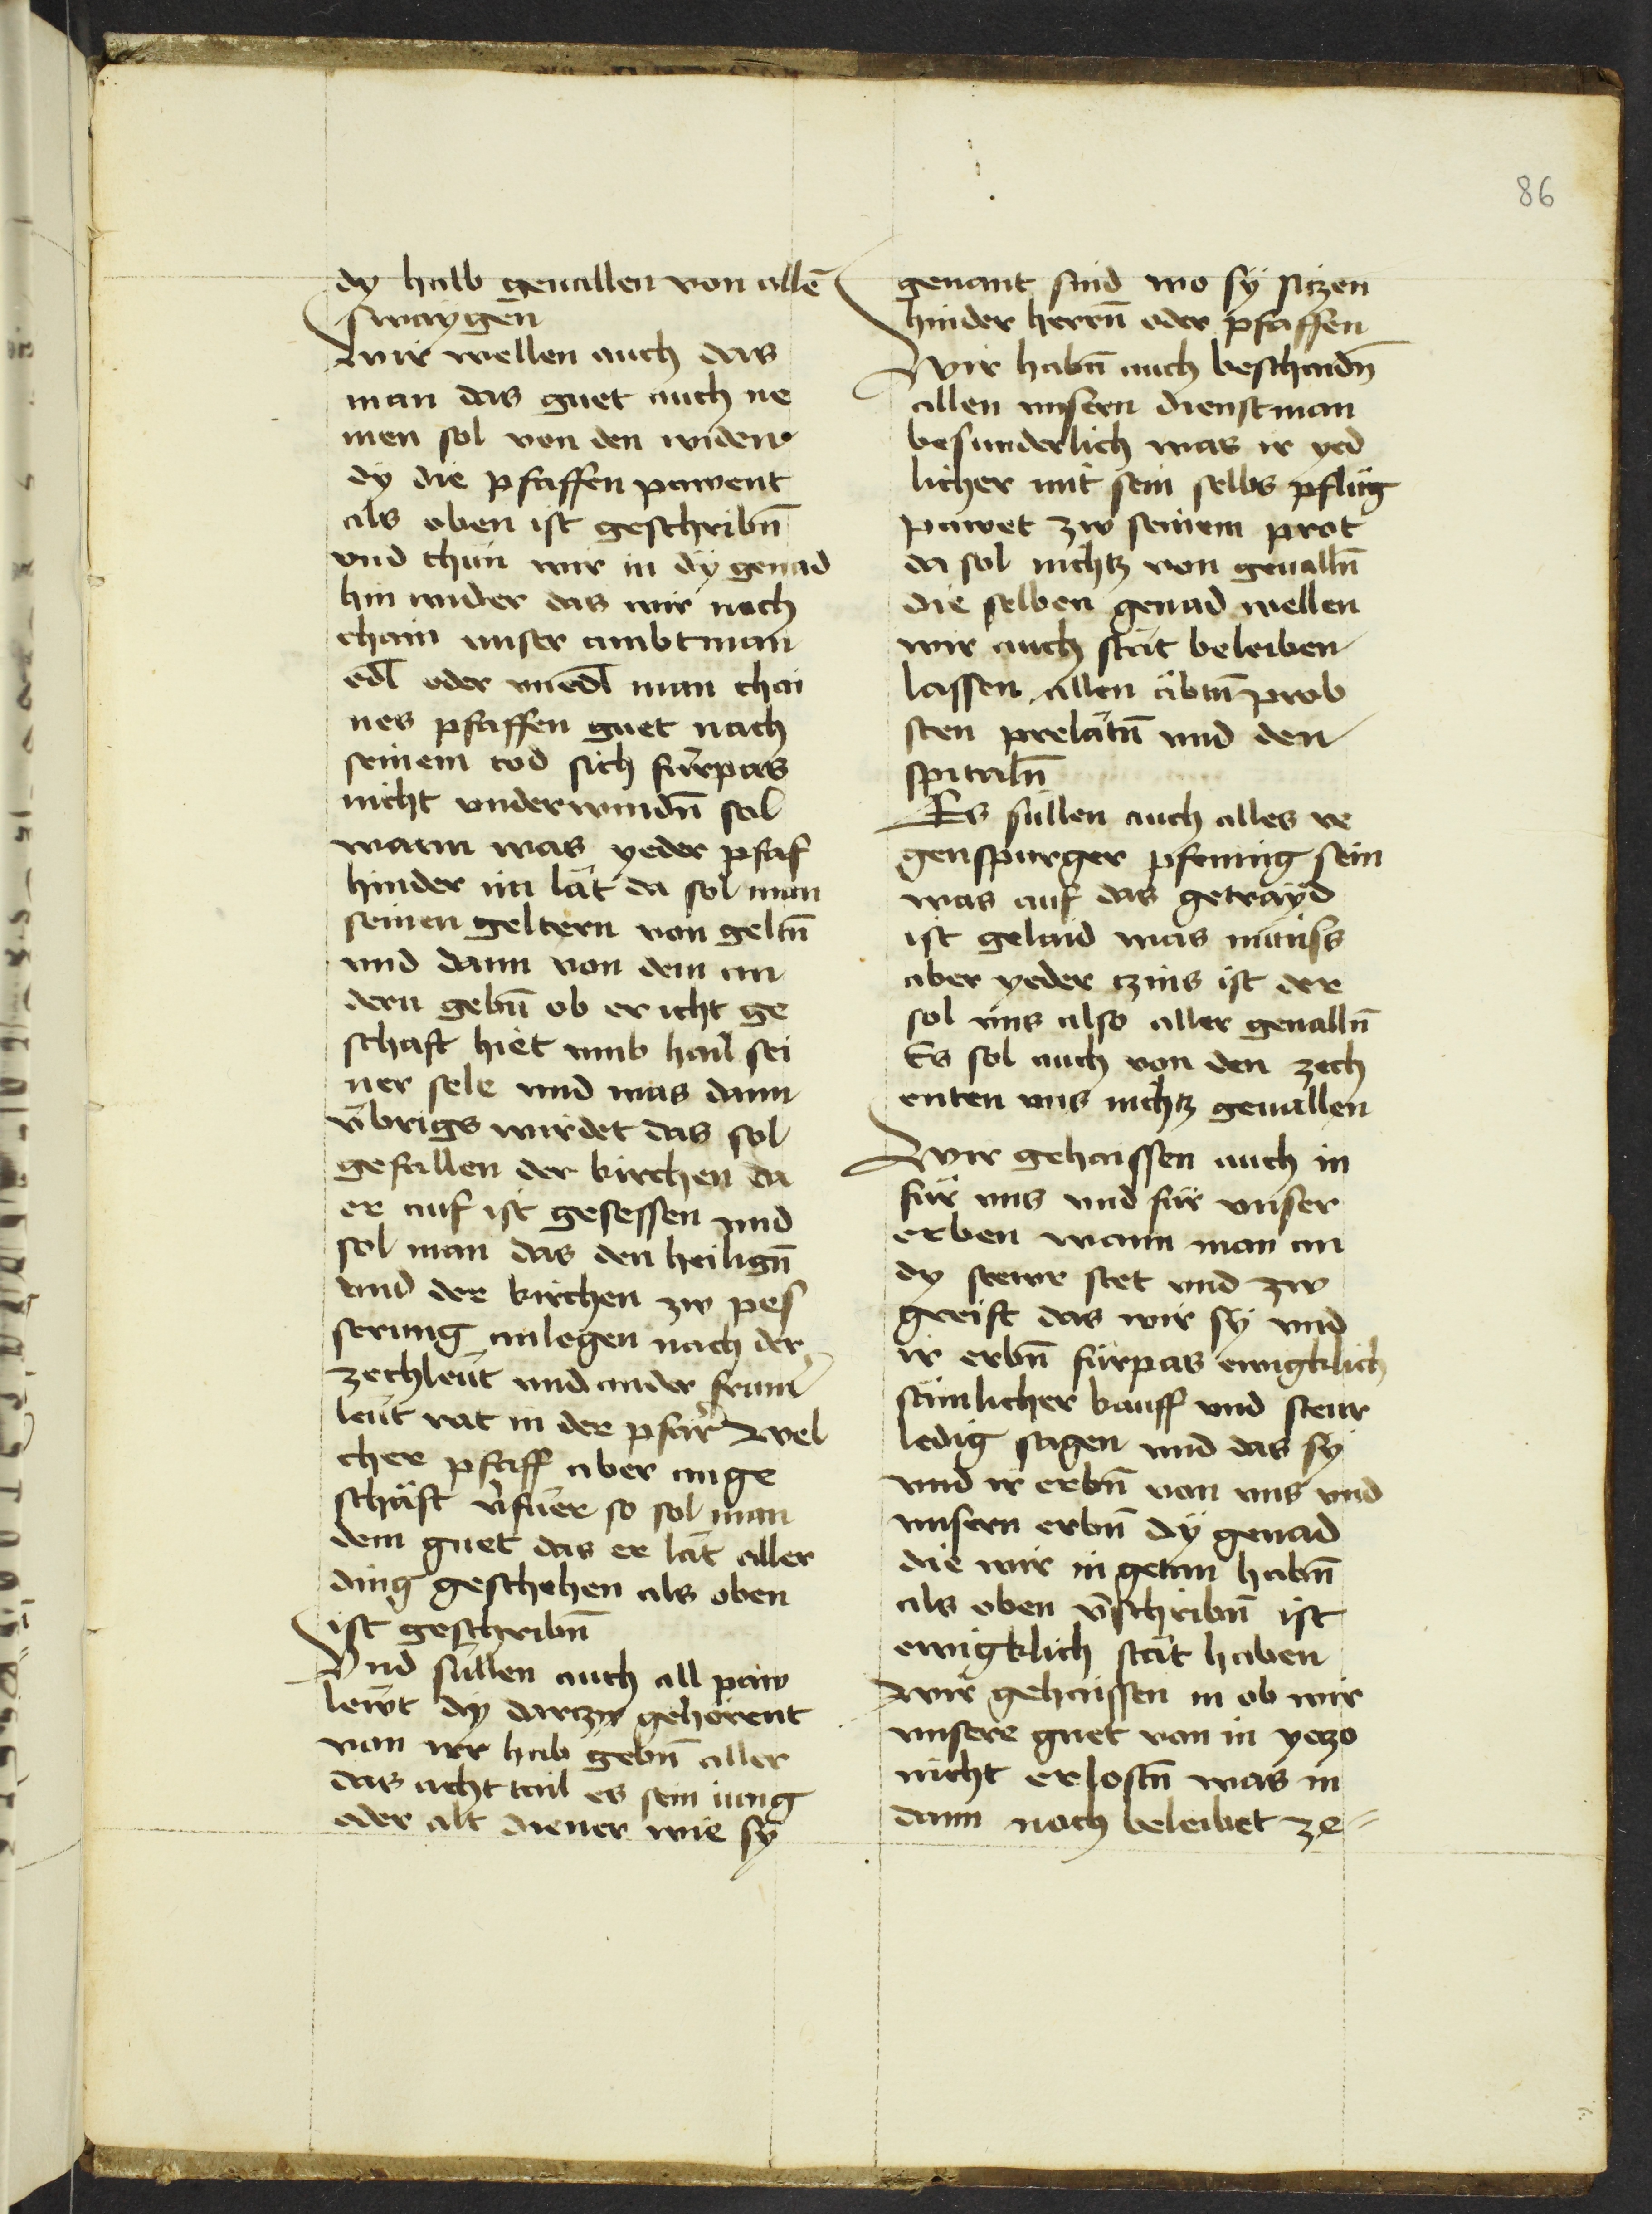 86
dy halb geuallen von allē
swaygen
wir wellen auch das
man das guet auch ne
men sol von den widen
dy die pfaffen pawent
als oben ist geschribn̄
vnd thun wir in dÿ genad
hin wider das wir noch
chain vnser ambtman
edl oder vnedl man chai
nes pfaffen guet nach
seinem tod sich fürpas
nicht vnderwindn̄ sol
wann was yeder pfaf
hinder im lät da sol man
seinen geltern von geltn̄
vnd dann von dem an
dern gebn̄ ob er icht ge
schaft hiet vmb hail sei
ner sele vnd was dann
v̈brigs wirdet das sol
gefallen der kirchen da
er auf ist gesessen vnd
sol man das den heilign̄
vnd der kirchen zw pes
serung anlegen nach der
zechleüt vnd ander frum̄
leüt rat in der pfarr wel
cher pfaff aber ange
schäft v̄fuer so sol man
dem guet das er lät aller
ding geschehen als oben
ist geschribn̄
Vnd süllen auch all paw
lewt dy darczw gehörent
von irr hab gebn̄ aller
das acht tail es sein iung
oder alt diener wie sÿ
genant sind wo sÿ siczen
hinder herrn̄ oder pfaffen
Wir habn̄ auch beschaidn̄
allen vnsern dienstman
besunderlich was ir yed
licher mit sein selbs pflüg
pawet zw seinem prot
da sol nichtz von geualln̄
die selben genad wellen
wir auch stät beleiben
lassen allen äbtn̄ prob
sten prelätn̄ vnd den
spitaln̄
Es süllen auch alles re
genspurger pfening sein
was auf das getrayd
ist gelaid was münss
aber yeder czins ist der
sol vns also aller geualln̄
Es sol auch von den zech
enten vns nichtz geuallen
Wir gehaissen auch in
für vns vnd für vnser
erben wann man an
dy stewr stet vnd zw
greift das wir sÿ vnd
ir erbn̄ fürpas ewigklich
sämlicher kauff vnd steur
ledig sagen vnd das sÿ
vnd ir erbn̄ von vns vnd
vnsern erbn̄ dÿ genad
die wir in getan habn̄
als oben v̄schribn̄ ist
ewigklich stät haben
wir gehaissen in ob wir
vnsere guet von in yeczo
nicht erlostn̄ was in
dann noch beleibet ze